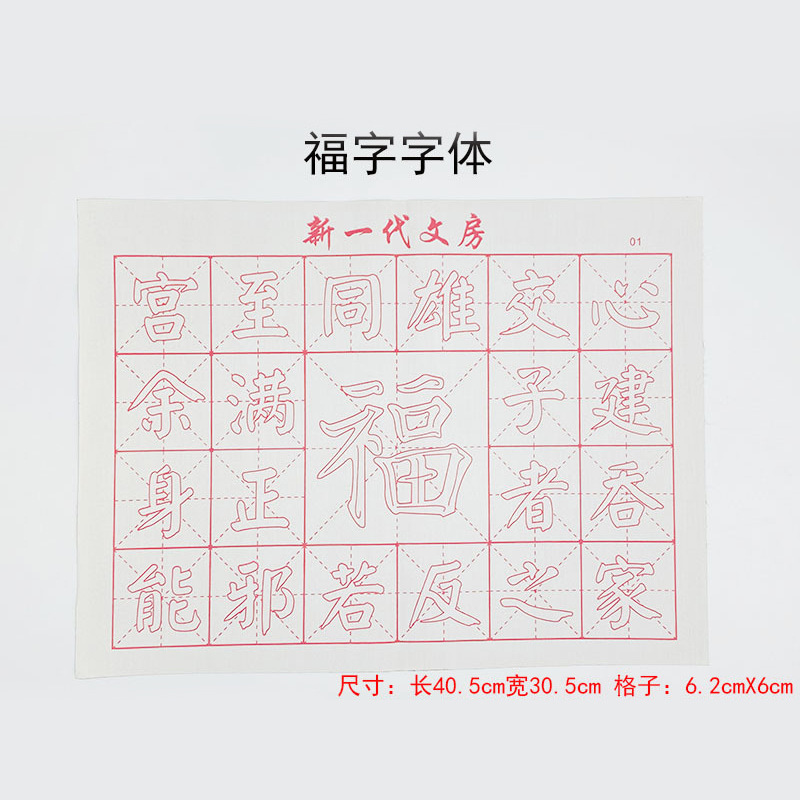 福字字体
新一代文房
01
宫至同雄交心
余满福子建
身正者吞
能邪若反之家
尺寸：长40.5cm宽30.5cm 格子：6.2cmX6cm